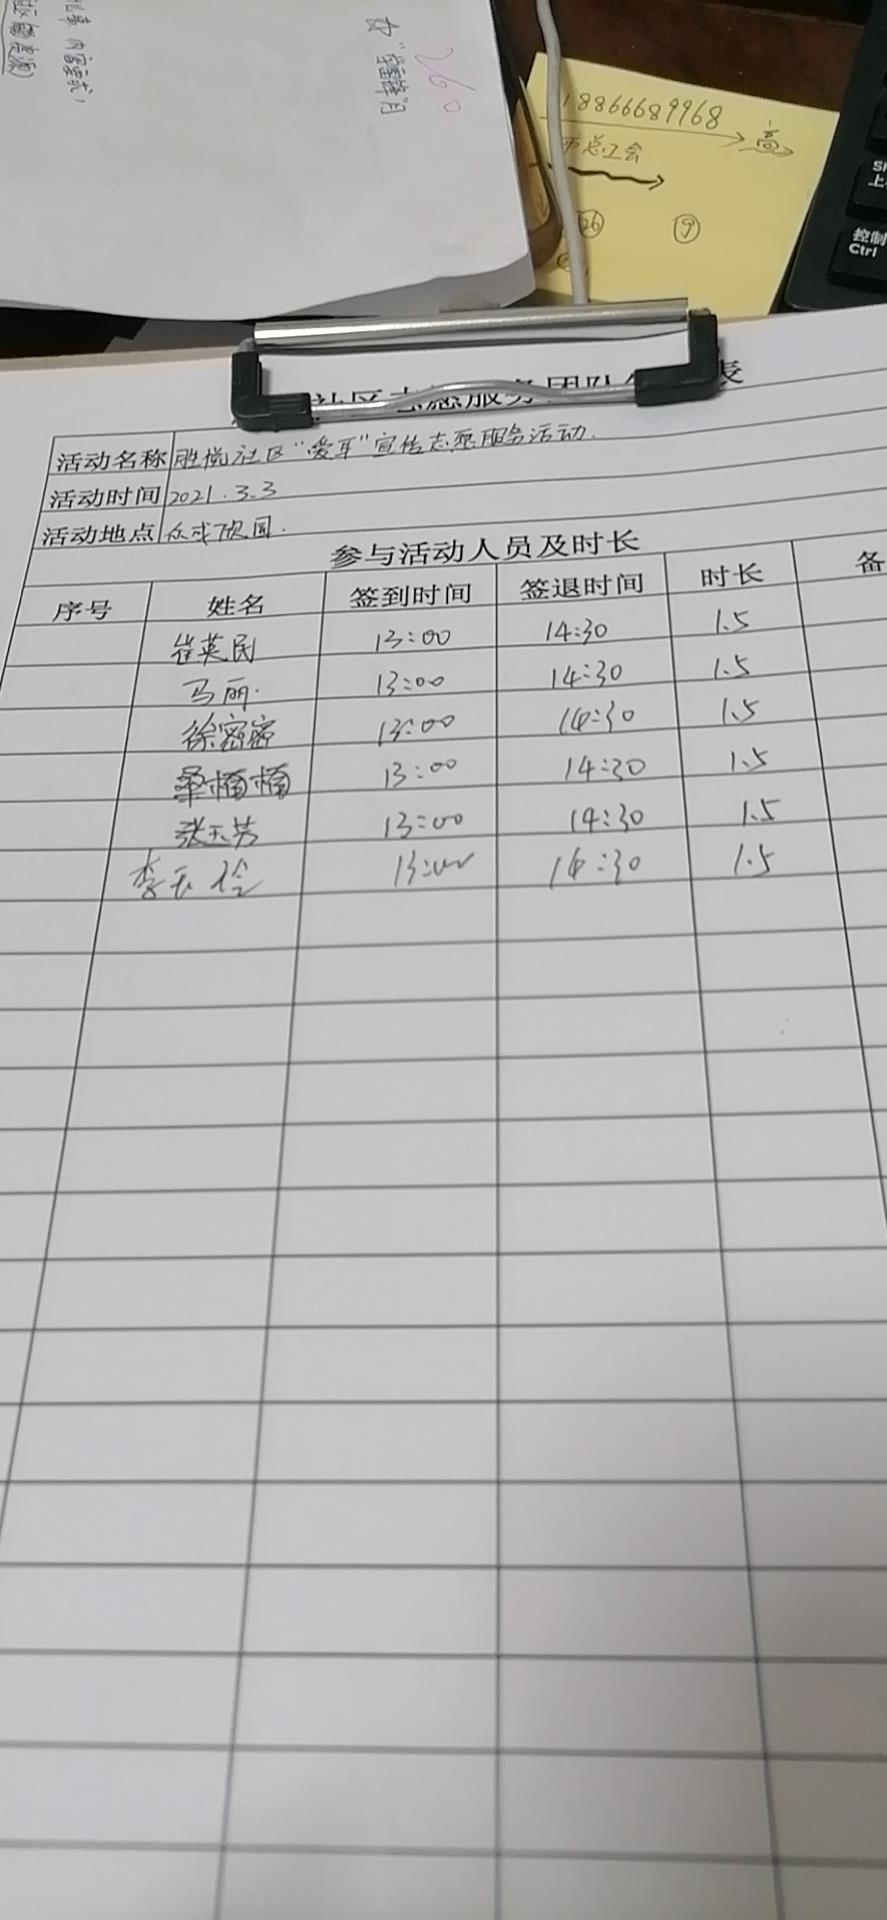 18866689968
市总工会
26
9
260
控制
Ctrl
表
活动名称 胜悦社区“爱耳”宣传志愿服务活动.
活动时间 2021.3.3
活动地点
参与活动人员及时长
序号 姓名 签到时间 签退时间 时长 备
崔英民 13:00 14:30 1.5
马丽. 13:00 14:30 1.5
徐密密 13:00 14:30 1.5
桑楠楠 13:00 14:30 1.5
张玉芳 13:00 14:30 1.5
李玉 13:00 14:30 1.5